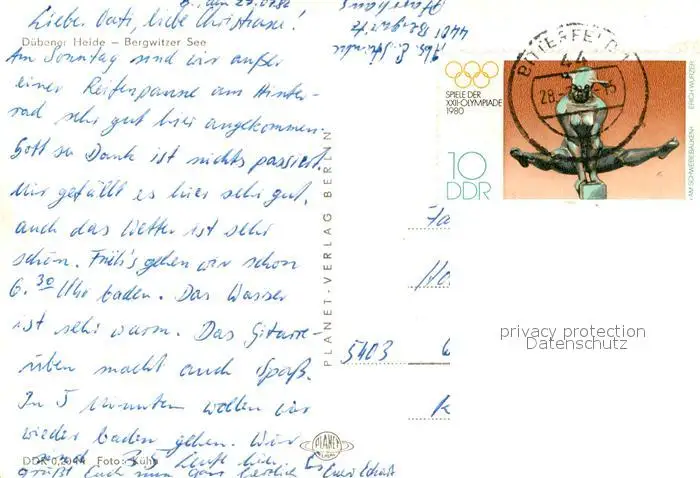 Liebe Vati, liebe Christiane!
Dübener Heide – Bergwitzer See
Am Sonntag sind wir außer
einer Reifenpanne am Hinter-
rad sehr gut hier angekommen.
Gott sei Dank ist nichts passiert.
Mir gefällt es hier sehr gut,
auch das Wetter ist sehr
schön. Früh's gehen wir schon
6.30 Uhr baden. Das Wasser
ist sehr warm. Das Gitarre-
üben macht auch Spaß.
In 5 Minuten wollen wir
wieder baden gehen. Wir
sind 25 Leute hier.
grüßt Euch nun ganz herzlich
Euer
DDR 0,20 M Foto: Kühn
PLANET-VERLAG BERLIN
PLANET
Abs. E.
4401 Bergwitz
Pfarrhaus
BITTERFELD 1
44
SPIELE DER
XXII. OLYMPIADE
1980
10
DDR
»AM SCHWEBEBALKEN«
ERICH WURZER
Fa
Ha
5403
privacy protection
Datenschutz